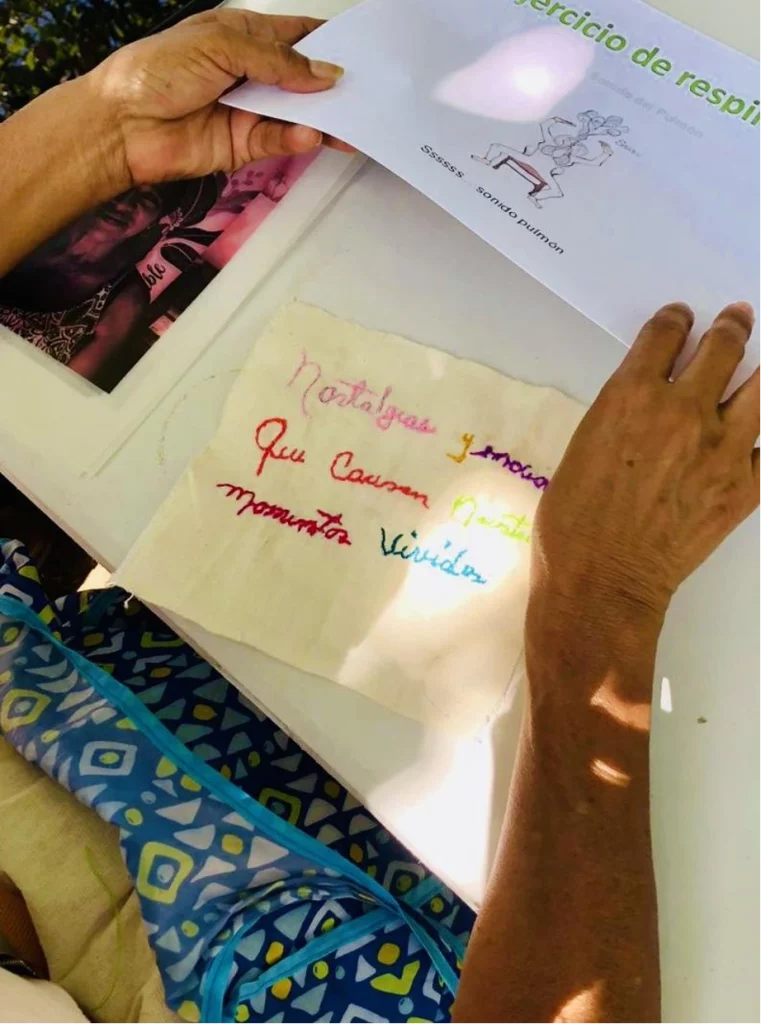 ejercicio de respir
Sonido del Pulmón
Ssssss... sonido pulmón
ble
Nostalgias y emocio
Que Causan
momentos Vividos